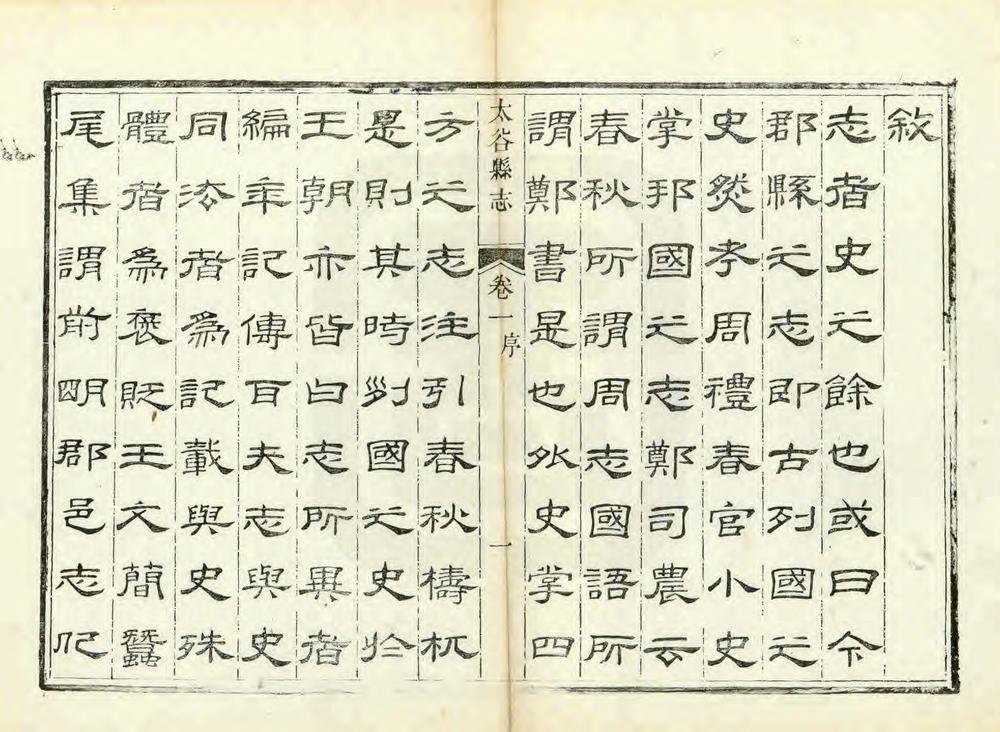 敘
志者史之餘也或曰今
郡縣之志即古列國之
史然考周禮春官小史
掌邦國之志鄭司農云
春秋所謂周志國語所
謂鄭書是也外史掌四
太谷縣志 卷一 序 一
方之志注引春秋檮杌
是則其時列國之史於
王朝亦皆曰志所異者
編年記傳耳夫志與史
同法者為記載與史殊
體者為褒貶王文簡蠶
尾集謂前明郡邑志凡